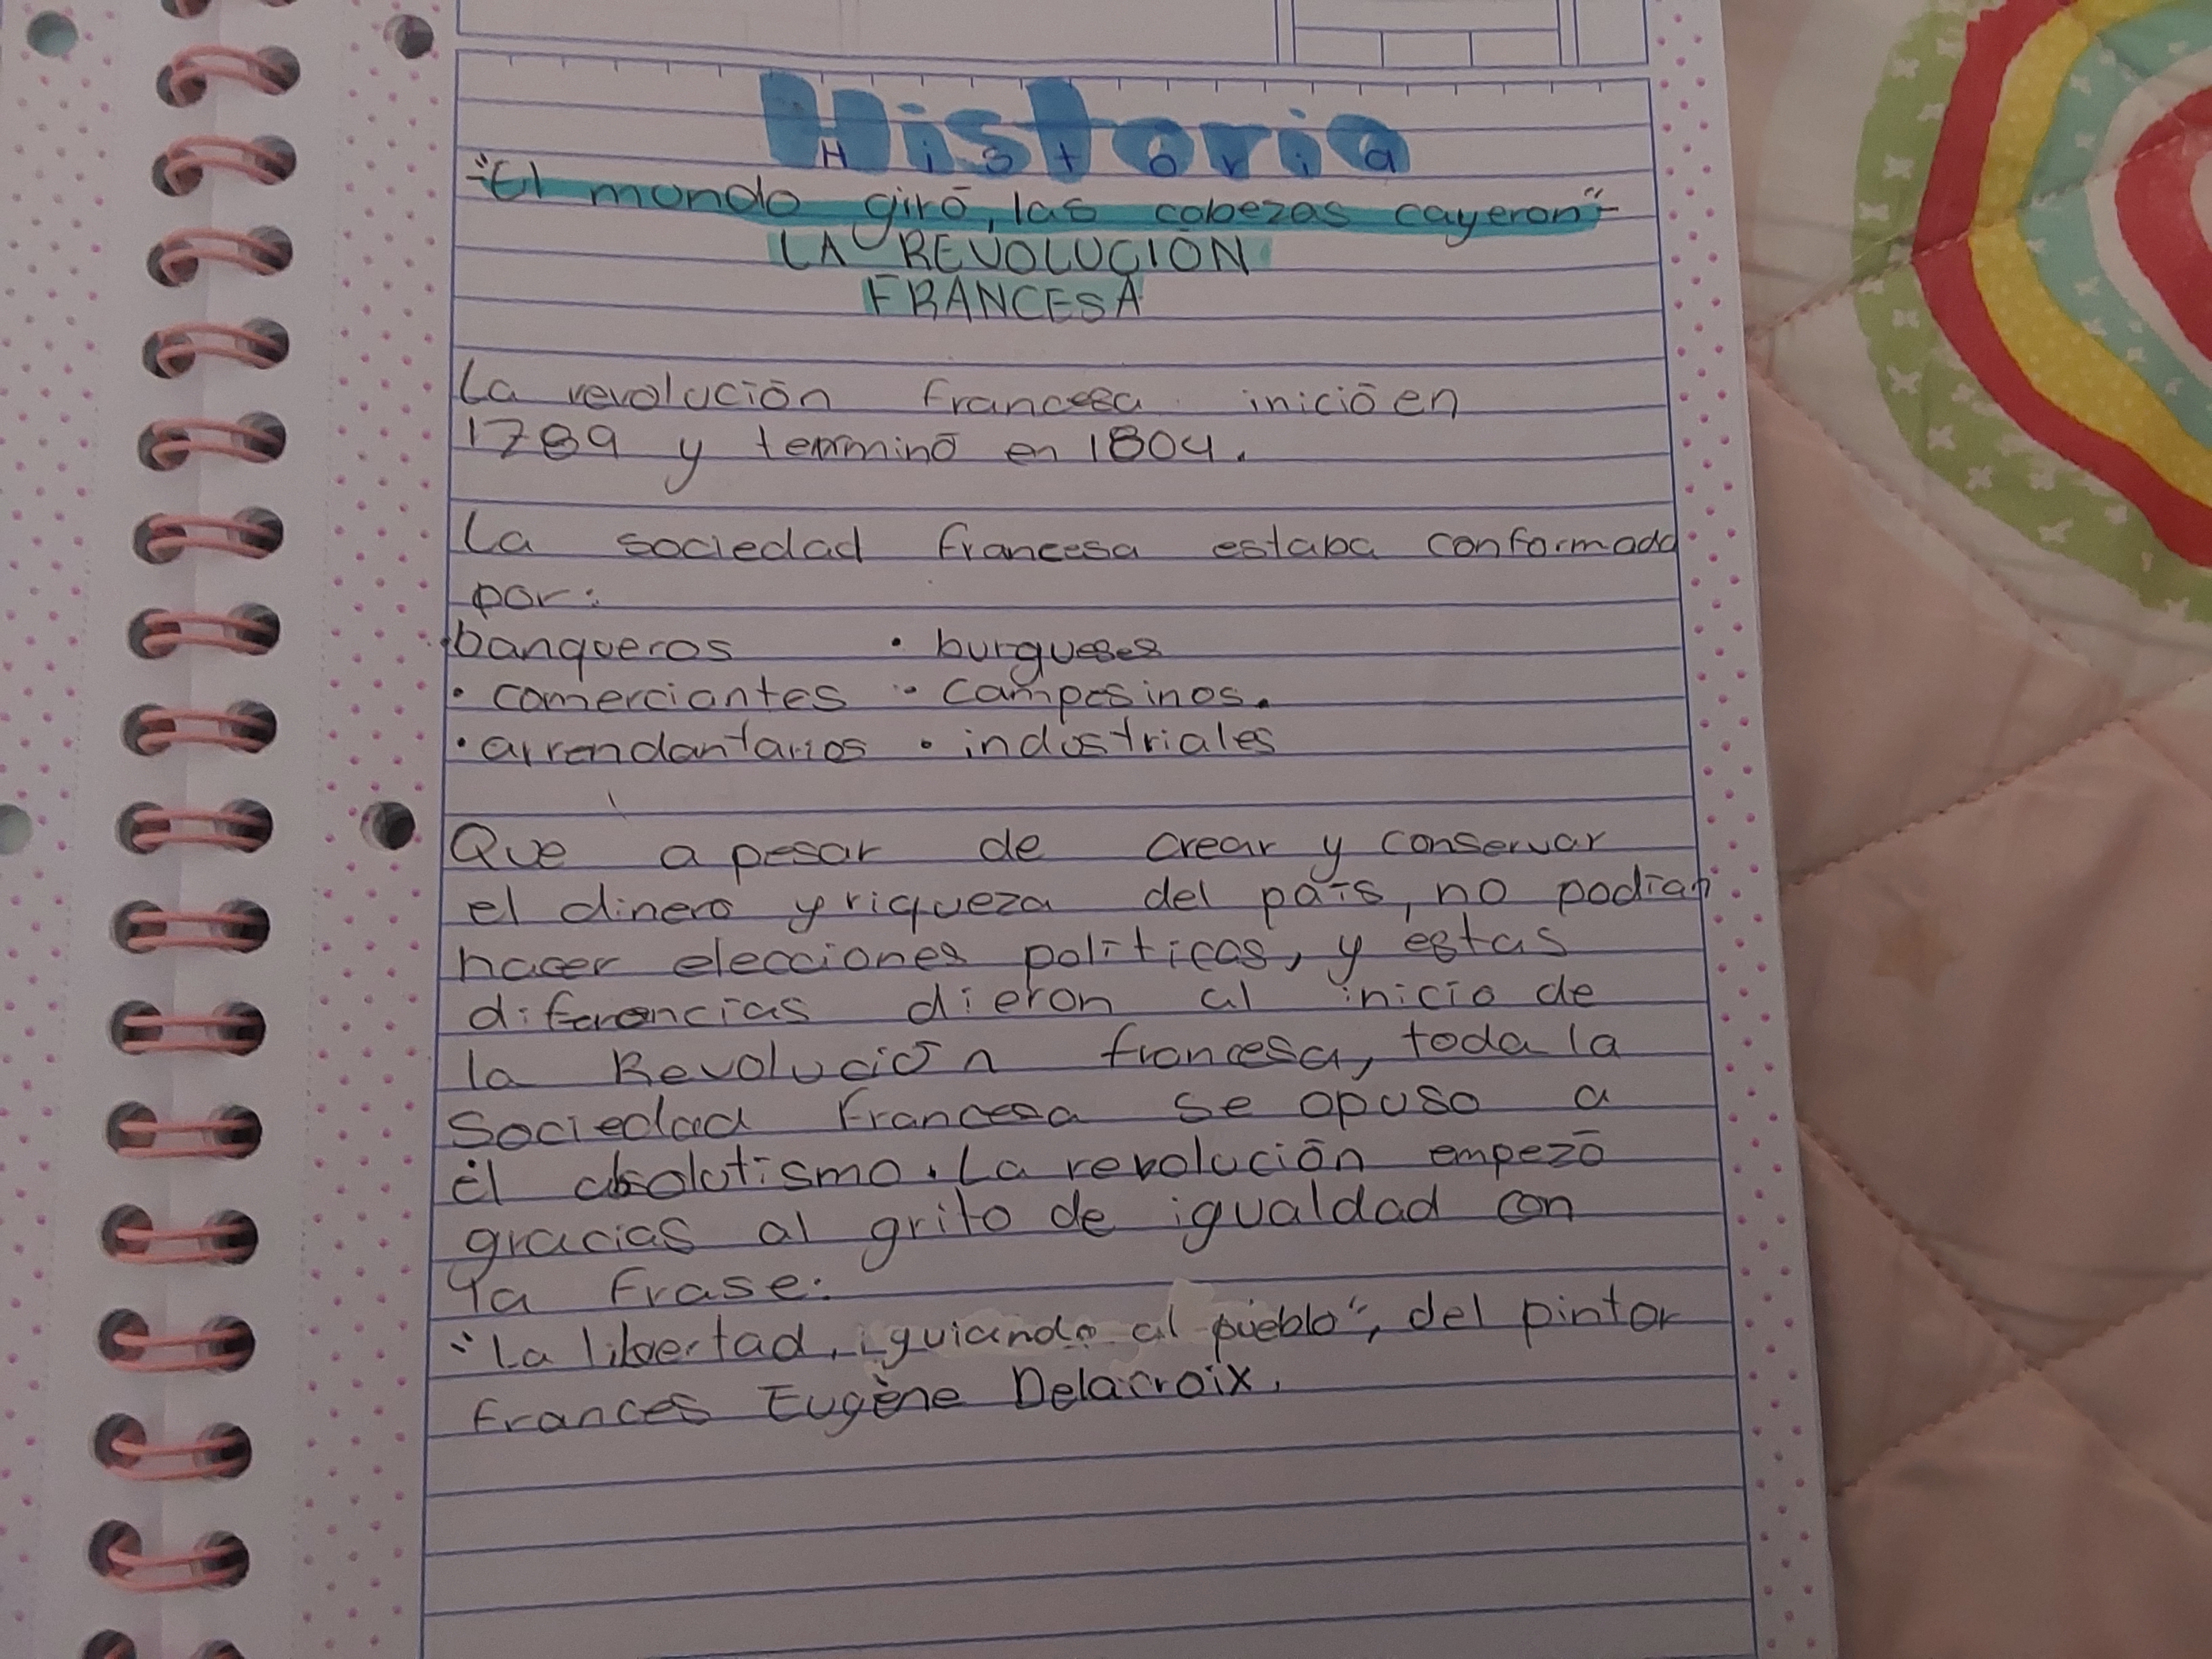 Historia
"El mundo giró, las cabezas cayeron"
LA REVOLUCIÓN
FRANCESA
La revolución francesa inició en
1789 y terminó en 1804.
La sociedad francesa estaba conformada
por:
• banqueros • burgueses
• comerciantes • campesinos.
• arrendantarios • industriales
Que a pesar de crear y conservar
el dinero y riqueza del país, no podían
hacer elecciones políticas, y estas
diferencias dieron al inicio de
la Revolución francesa, toda la
Sociedad Francesa se opuso a
él absolutismo. La revolución empezó
gracias al grito de igualdad con
la frase:
"La libertad, guiando al pueblo", del pintor
Frances Eugène Delacroix.